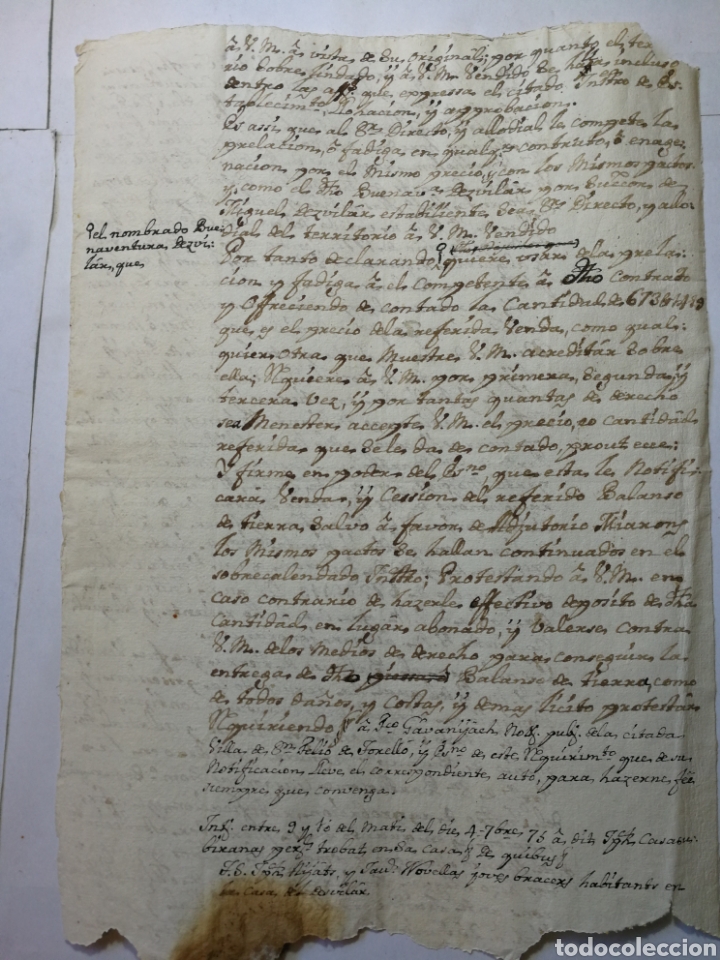 â V. M. â vista de su original; por quanto el ter
rio sobre lindado, ÿ â V. M. Vendido se halla incluso
dentro las que expressa el citado Insttro de Es
tablecimto, Donacion, ÿ approbacion.
Es assi, que al Sor Directo, ÿ allodial le compete la
prelacion, ô fadiga en qualqr contrato, ô enage
nacion por el mismo precio, ÿ con los Mismos pactos
y como el dho Buenavra Dezvilar por Succor de
Miquel Dezvilar estabiliente sea Sor Directo, y allo
dial del territorio â V. M. Vendido
el nombrado Bue
naventura Dezvi
lar, que
Por tanto declarando quiere usar de la prela
cion y fadiga â el Competente â dho Contrato
y Offreciendo de contado la Cantidad de 673
que es el precio de la referida Venda, como qual
quier otra que Muestre V. M. acreditar sobre
ella; Rquiere â V. M. por primera, Segunda, ÿ
tercera Vez, ÿ por tantas quantas de derecho
sea Menester accepte V. M. el precio, o cantidad
referida que se le da de contado, prout ecce;
Y firme en poder del Esno, que esta le Notifi
cará Venda, ÿ Cession del referido Balanso
de tierra salvo â favor de Adjutorio Miarons
los Mismos pactos se hallan continuados en el
sobrecalendado Insttro; Protestando â V. M. en
caso contrario de hazerle effectivo deposito de dha
Cantidad en lugar abonado, ÿ Valerse contra
V. M. de los Medios de derecho para conseguir la
entrega de dho Balanso de tierra, como
de todos daños, y Costas, ÿ demas licito protestar
Rquiriendo â Notr pubco de la citada
Villa de Sn Feliô de Torello, ÿ Esno de este Rquirimto que de sa
Notificacion lleve el correspondiente auto, para hazerne fee
siempre que convenga.
entre 9 y 10 del Mati del die 4 7bre 75 â dit Jph Casasu
biranas trobat en sa Casa de quibus
T. S. Jph y Novellas joves bracers habitants en
la casa de Desvilar
todocoleccion
todocoleccion.net